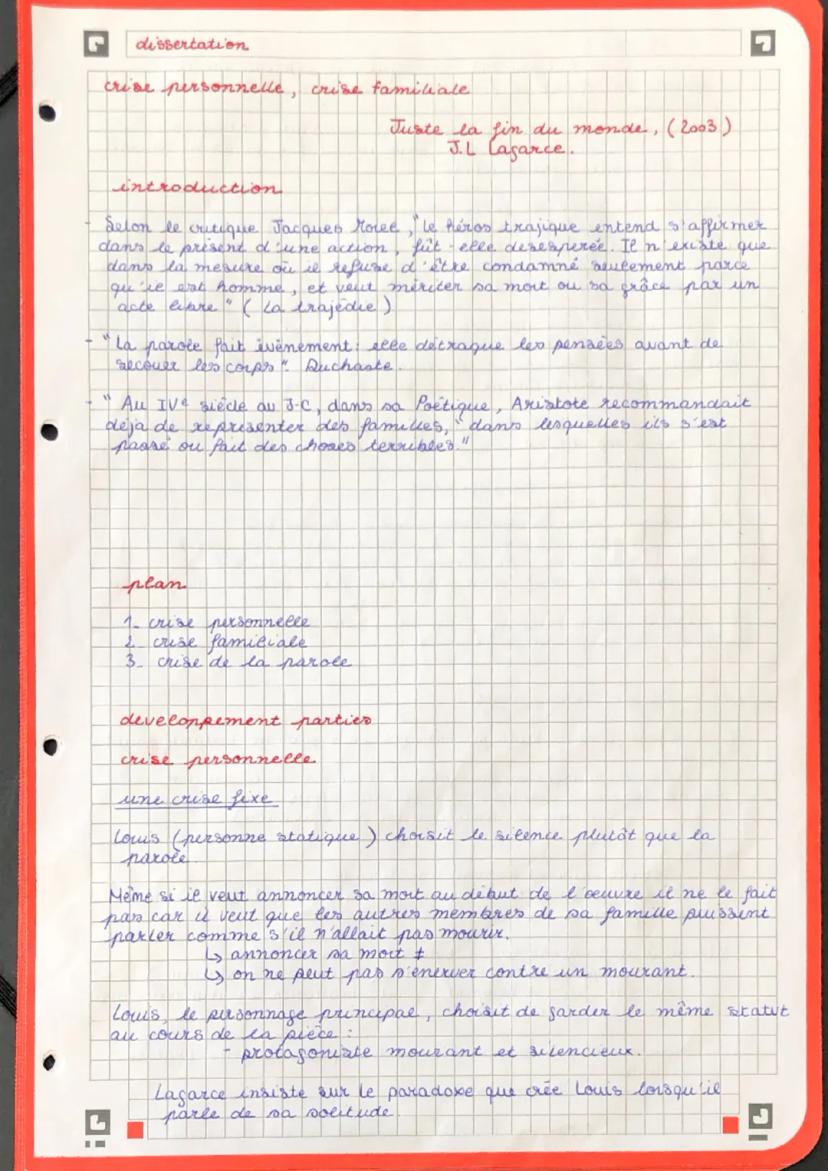 dissertation
crise personnelle, crise familiale
Juste la fin du monde, (2003)
J.L Lagarce.
introduction
- Selon le critique Jacques Morel, "le héros trajique entend s'affirmer
dans le présent d'une action, fût-elle desesperée. Il n'existe que
dans la mesure où il refuse d'être condamné seulement parce
qu'il est homme, et veut mériter sa mort ou sa grâce par un
acte libre" ( La trajédie )
- "La parole fait évènement : elle détraque les pensées avant de
secouer les corps". Ruchaste.
- " Au IVe siècle av J-C, dans sa Poëtique, Aristote recommandait
déja de représenter des familles, "dans lesquelles ils s'est
passé ou fait des choses terribles."
plan
1_ crise personnelle
2_ crise familiale
3_ crise de la parole
developpement parties
crise personnelle
une crise fixe
Louis (personne statique) choisit le silence plutôt que la
parole
Même si il veut annoncer sa mort au début de l'oeuvre il ne le fait
pas car il veut que les autres membres de sa famille puissent
parler comme s'il n'allait pas mourir.
↳ annoncer sa mort ≠
↳ on ne peut pas s'énerver contre un mourant.
Louis, le personnage principal, choisit de garder le même statut
au cours de la pièce :
- protagoniste mourant et silencieux.
Lagarce insiste sur le paradoxe que crée Louis lorsqu'il
parle de sa solitude